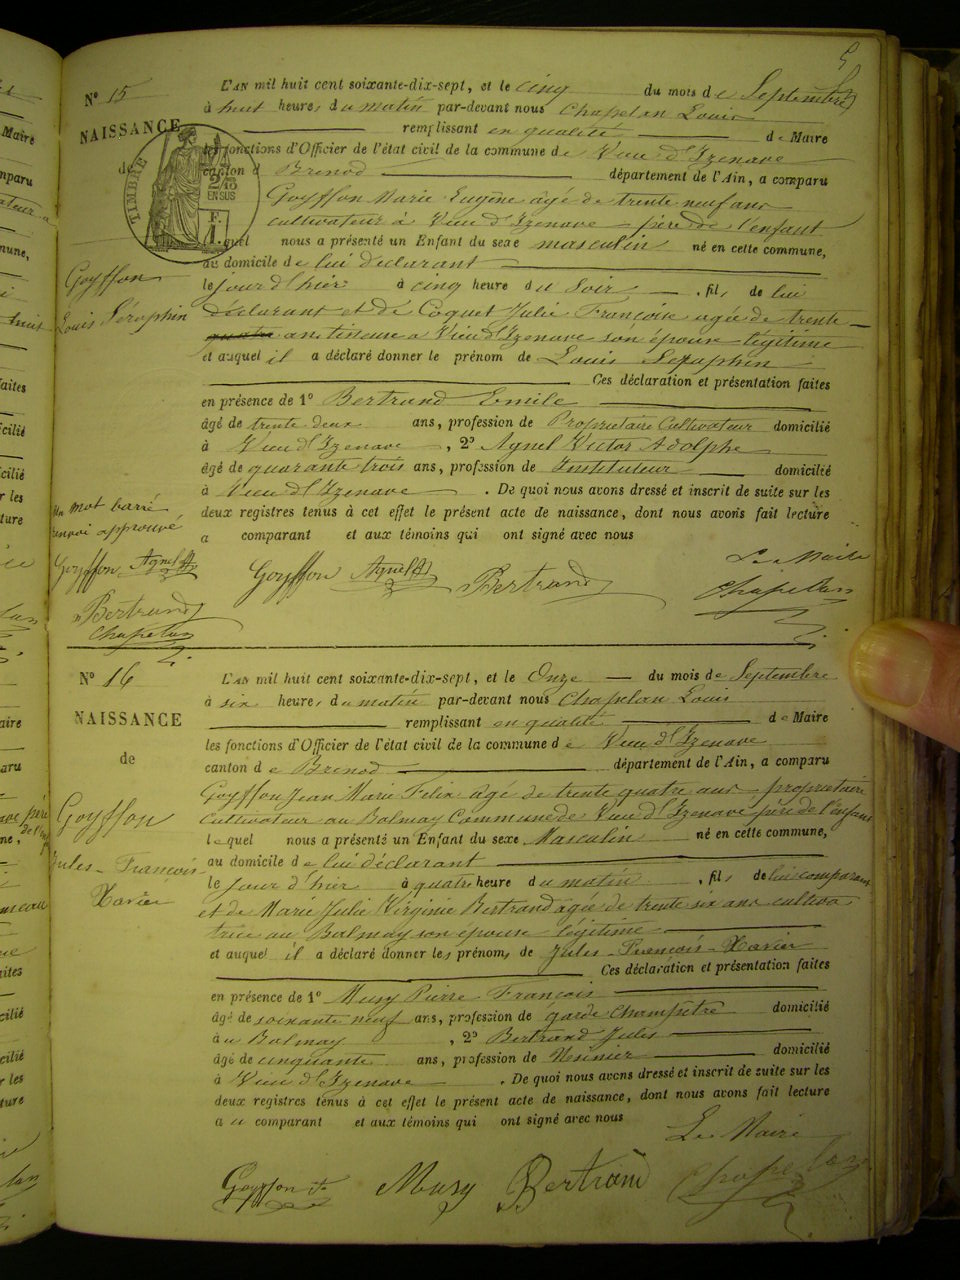 5
N° 15
NAISSANCE
de
TIMBRE
2/10
EN SUS
F.
1.
Goyffon
Louis Séraphin
L'AN mil huit cent soixante-dix-sept, et le cinq du mois de Septembre
à huit heures du matin par-devant nous Chapelan Louis
remplissant en qualité de Maire
les fonctions d'Officier de l'état civil de la commune de Vieu d'Izenave
canton de Brenod département de l'Ain, a comparu
Goyffon Marie Eugène âgé de trente neuf ans
cultivateur à Vieu d'Izenave père de l'enfant
lequel nous a présenté un Enfant du sexe masculin né en cette commune,
au domicile de lui déclarant
le jour d'hier à cinq heure du soir , fils de lui
déclarant et de Coquet Julie Françoise agée de trente
quatre ans tisseuse a Vieu d'Izenave son épouse légitime
et auquel il a déclaré donner le prénom de Louis Séraphin
Ces déclaration et présentation faites
en présence de 1° Bertrand Emile
âgé de trente deux ans, profession de Propriétaire Cultivateur domicilié
à Vieu d'Izenave , 2° Agnel Victor Adolphe
âgé de quarante trois ans, profession de Instituteur domicilié
à Vieu d'Izenave . De quoi nous avons dressé et inscrit de suite sur les
deux registres tenus à cet effet le présent acte de naissance, dont nous avons fait lecture
a comparant et aux témoins qui ont signé avec nous
Un mot barré
renvoi approuvé
Goyffon Agnel
Bertrand
Chapelan
Goyffon Agnel Bertrand
Le Maire
Chapelan
N° 16
NAISSANCE
de
Goyffon
Jules-François
Xavier
L'AN mil huit cent soixante-dix-sept, et le Onze du mois de Septembre
à six heures du matin par-devant nous Chapelan Louis
remplissant en qualité de Maire
les fonctions d'Officier de l'état civil de la commune de Vieu d'Izenave
canton de Brenod département de l'Ain, a comparu
Goyffon Jean Marie Felix âgé de trente quatre ans propriétaire
Cultivateur au Balmay Commune de Vieu d'Izenave père de l'enfant
lequel nous a présenté un Enfant du sexe Masculin né en cette commune,
au domicile de lui déclarant
le jour d'hier à quatre heure du matin , fils de lui comparant
et de Marie Julie Virginie Bertrand agée de trente six ans cultiva
trice au Balmay son épouse légitime
et auquel il a déclaré donner les prénoms de Jules-François-Xavier
Ces déclaration et présentation faites
en présence de 1° Musy Pierre François
âgé de soixante neuf ans, profession de garde Champêtre domicilié
au Balmay , 2° Bertrand Jules
âgé de cinquante ans, profession de domicilié
à Vieu d'Izenave . De quoi nous avons dressé et inscrit de suite sur les
deux registres tenus à cet effet le présent acte de naissance, dont nous avons fait lecture
au comparant et aux témoins qui ont signé avec nous
Le Maire
Goyffon Musy Bertrand Chapelan